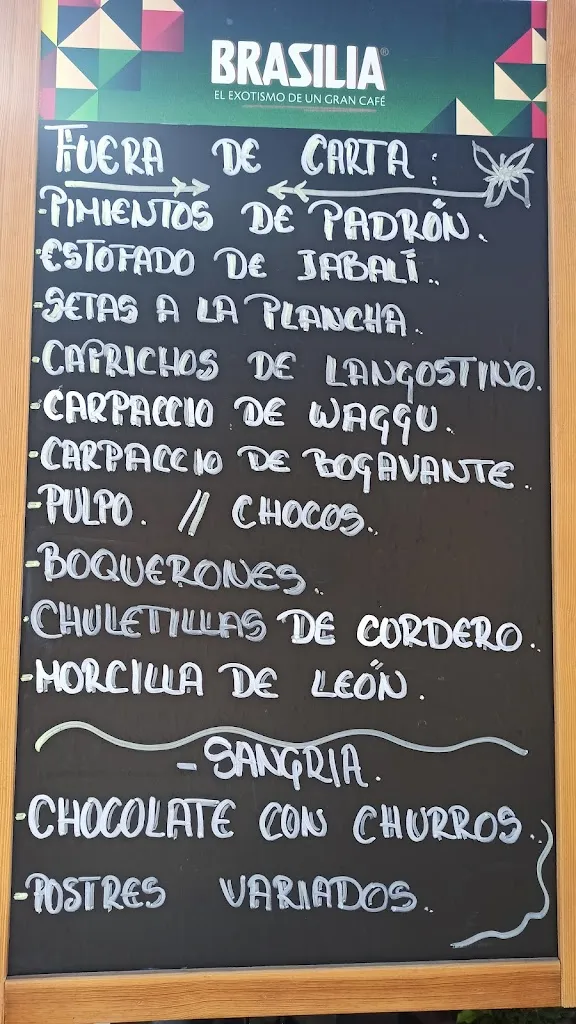 BRASILIA®
EL EXOTISMO DE UN GRAN CAFÉ
FUERA DE CARTA:
-PIMIENTOS DE PADRÓN.
-ESTOFADO DE JABALÍ..
-SETAS A LA PLANCHA.
-CAPRICHOS DE LANGOSTINO.
-CARPACCIO DE WAGGU.
-CARPACCIO DE BOGAVANTE.
-PULPO. // CHOCOS.
-BOQUERONES.
-CHULETILLAS DE CORDERO.
-MORCILLA DE LEÓN.
-SANGRIA.
-CHOCOLATE CON CHURROS.
-POSTRES VARIADOS.